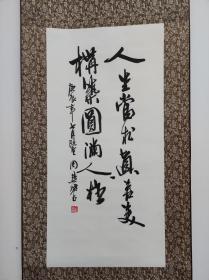 人生當於真善美
構築圓滿人格
庚辰年